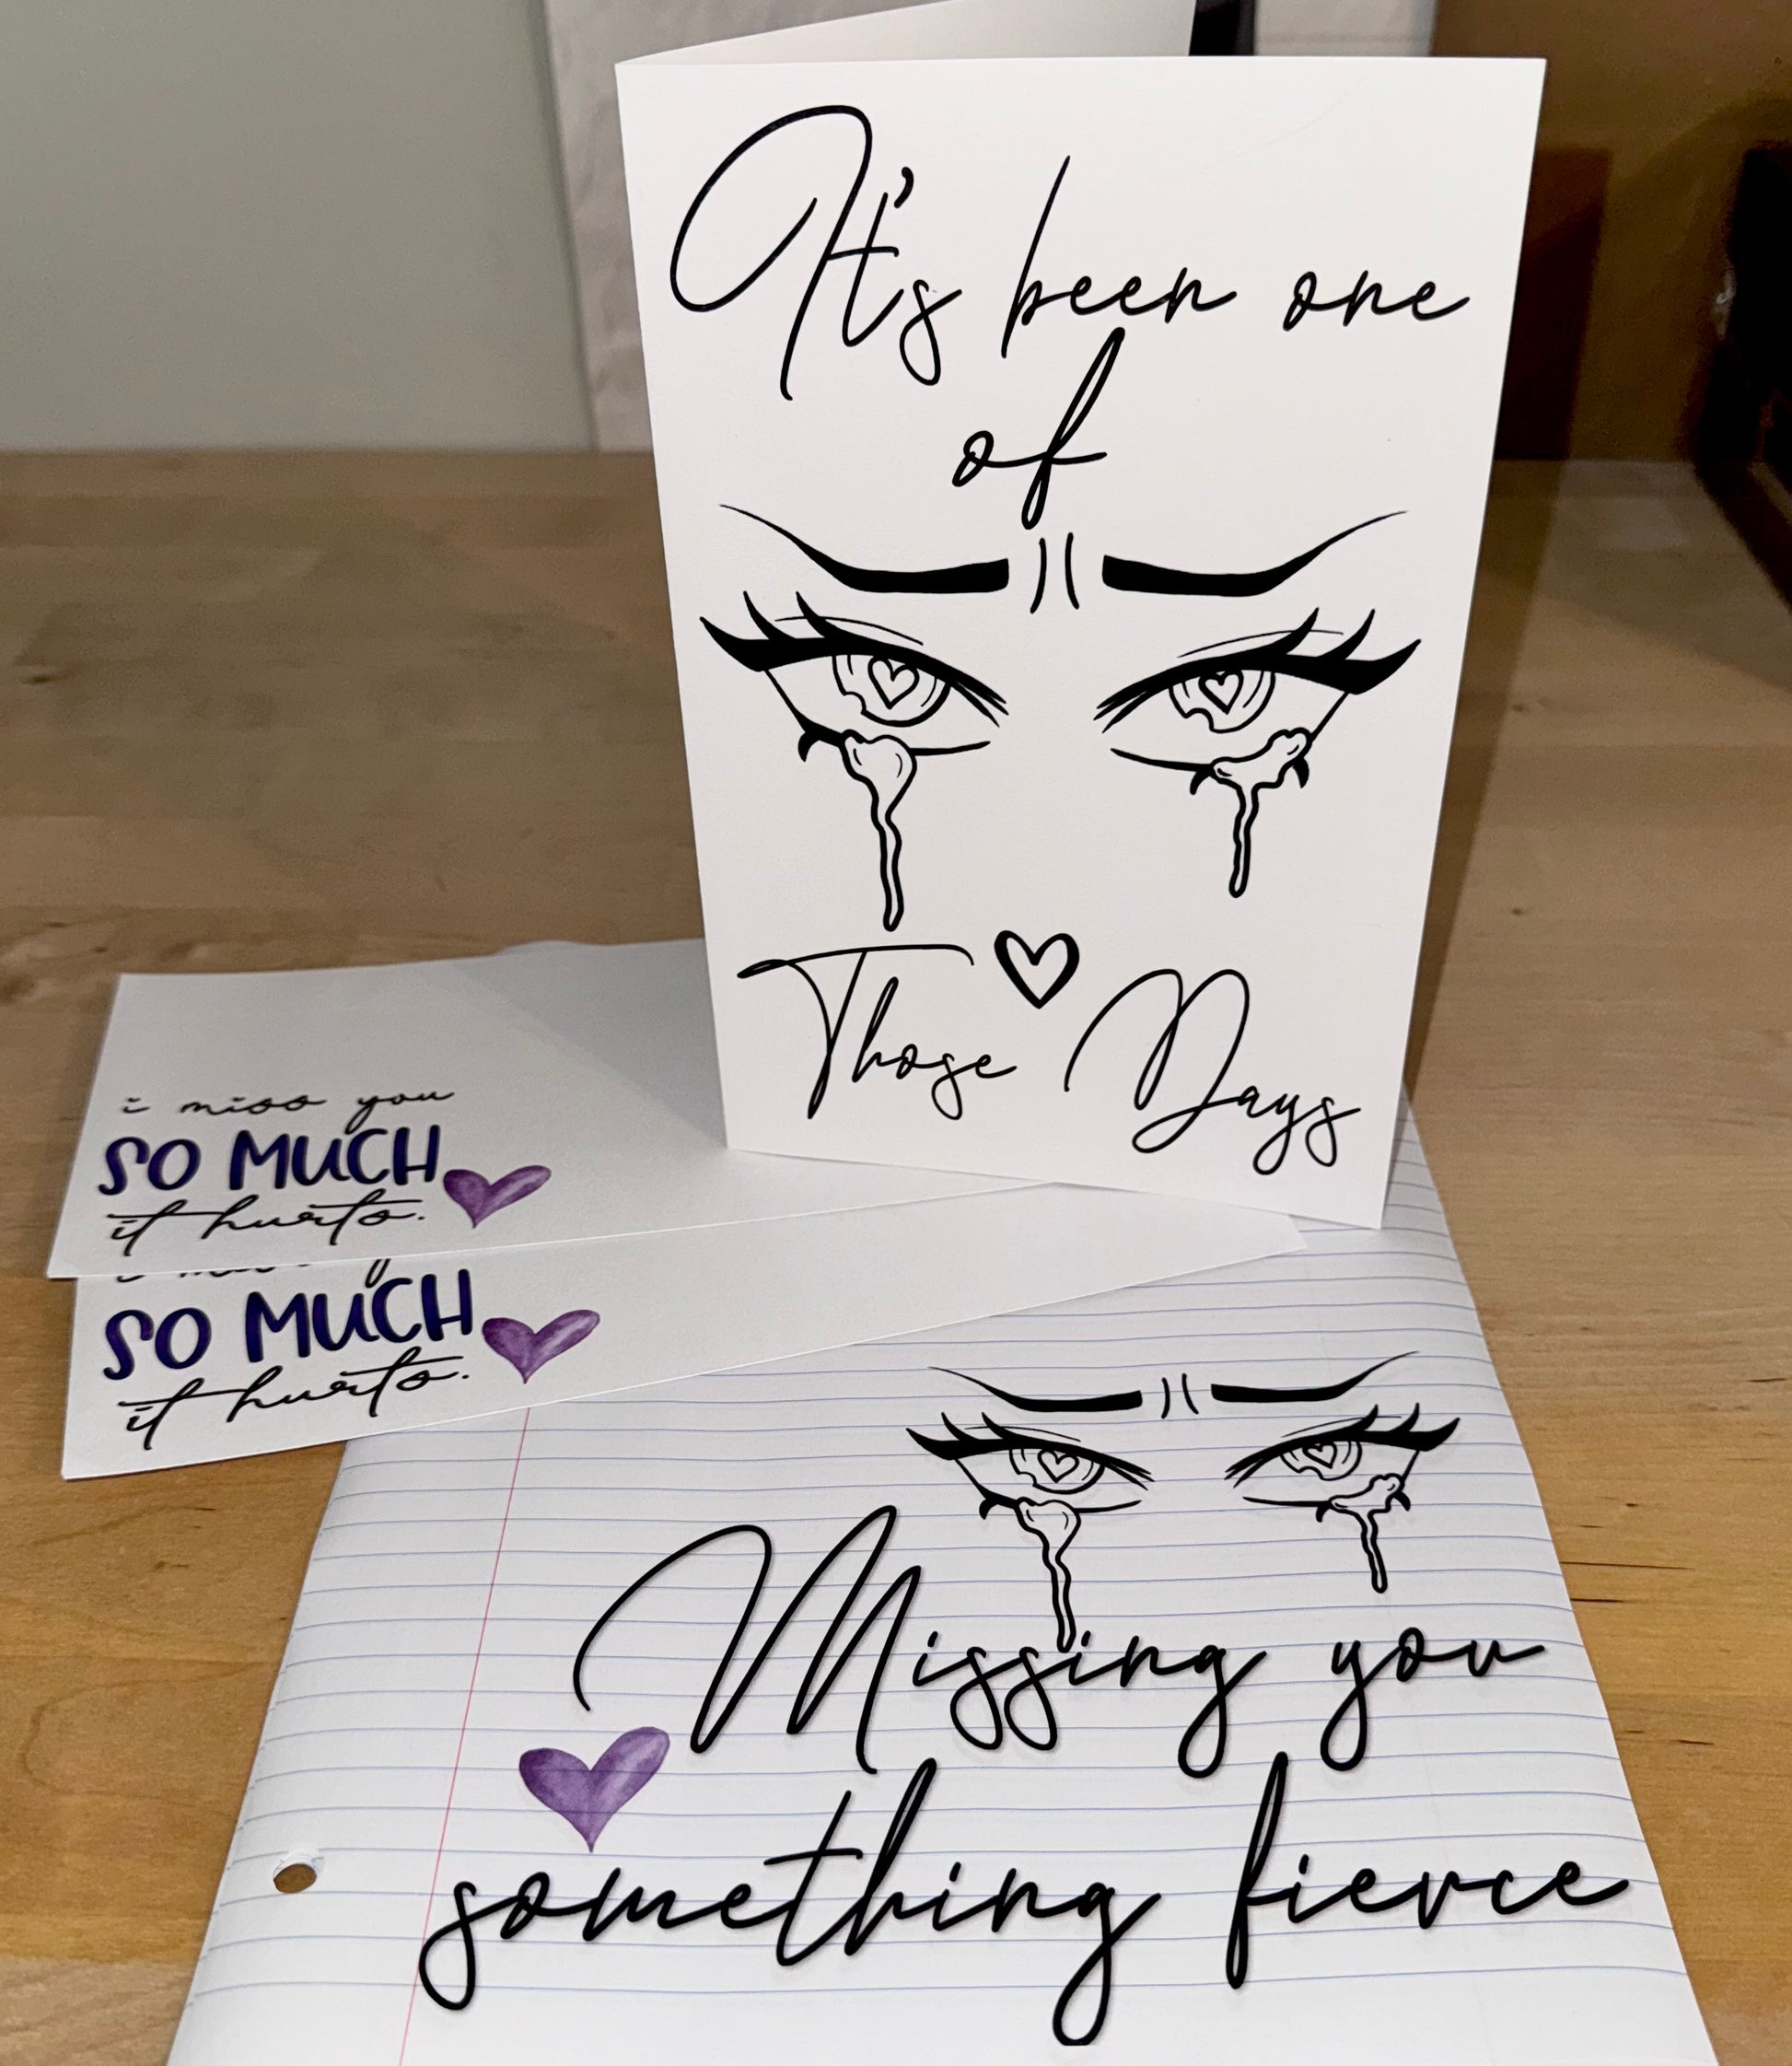 It's been one
of
Those Days
i miss you
SO MUCH
it hurts.
SO MUCH
it hurts.
Missing you
something fierce